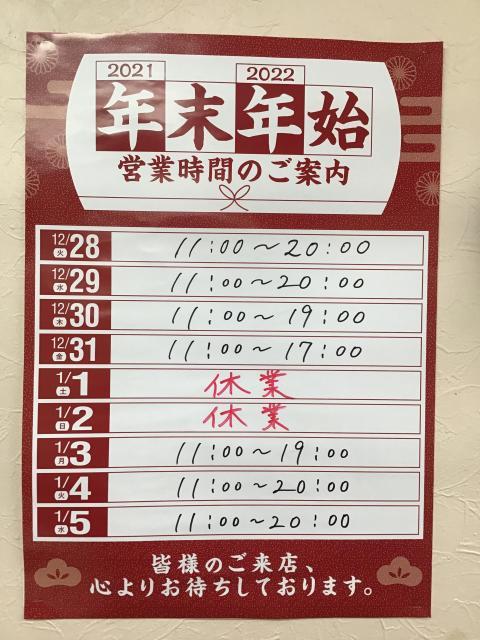 2021 2022
年末年始
営業時間のご案内
12/28 火 11:00～20:00
12/29 水 11:00～20:00
12/30 木 11:00～19:00
12/31 金 11:00～17:00
1/1 土 休業
1/2 日 休業
1/3 月 11:00～19:00
1/4 火 11:00～20:00
1/5 水 11:00～20:00
皆様のご来店、
心よりお待ちしております。